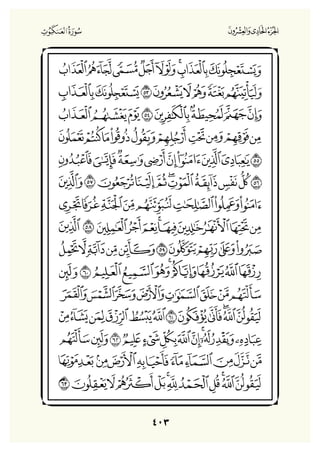 الجزء الحادي والعشرون سورة العنكبوت
وَيَسْتَعْجِلُونَكَ بِالْعَذَابِ وَلَوْلَا أَجَلٌ مُّسَمًّى لَّجَاءَهُمُ الْعَذَابُ
وَلَيَأْتِيَنَّهُم بَغْتَةً وَهُمْ لَا يَشْعُرُونَ ٥٣ يَسْتَعْجِلُونَكَ بِالْعَذَابِ
وَإِنَّ جَهَنَّمَ لَمُحِيطَةٌ بِالْكَافِرِينَ ٥٤ يَوْمَ يَغْشَاهُمُ الْعَذَابُ
مِن فَوْقِهِمْ وَمِن تَحْتِ أَرْجُلِهِمْ وَيَقُولُ ذُوقُوا مَا كُنتُمْ تَعْمَلُونَ
٥٥ يَاعِبَادِيَ الَّذِينَ آمَنُوا إِنَّ أَرْضِي وَاسِعَةٌ فَإِيَّايَ فَاعْبُدُونِ
٥٦ كُلُّ نَفْسٍ ذَائِقَةُ الْمَوْتِ ثُمَّ إِلَيْنَا تُرْجَعُونَ ٥٧ وَالَّذِينَ
آمَنُوا وَعَمِلُوا الصَّالِحَاتِ لَنُبَوِّئَنَّهُم مِّنَ الْجَنَّةِ غُرَفًا تَجْرِي
مِن تَحْتِهَا الْأَنْهَارُ خَالِدِينَ فِيهَا نِعْمَ أَجْرُ الْعَامِلِينَ ٥٨ الَّذِينَ
صَبَرُوا وَعَلَى رَبِّهِمْ يَتَوَكَّلُونَ ٥٩ وَكَأَيِّن مِّن دَابَّةٍ لَّا تَحْمِلُ
رِزْقَهَا اللَّهُ يَرْزُقُهَا وَإِيَّاكُمْ وَهُوَ السَّمِيعُ الْعَلِيمُ ٦٠ وَلَئِن
سَأَلْتَهُم مَّنْ خَلَقَ السَّمَاوَاتِ وَالْأَرْضَ وَسَخَّرَ الشَّمْسَ وَالْقَمَرَ
لَيَقُولُنَّ اللَّهُ فَأَنَّى يُؤْفَكُونَ ٦١ اللَّهُ يَبْسُطُ الرِّزْقَ لِمَن يَشَاءُ مِنْ
عِبَادِهِ وَيَقْدِرُ لَهُ إِنَّ اللَّهَ بِكُلِّ شَيْءٍ عَلِيمٌ ٦٢ وَلَئِن سَأَلْتَهُم
مَّن نَّزَّلَ مِنَ السَّمَاءِ مَاءً فَأَحْيَا بِهِ الْأَرْضَ مِن بَعْدِ مَوْتِهَا
لَيَقُولُنَّ اللَّهُ قُلِ الْحَمْدُ لِلَّهِ بَلْ أَكْثَرُهُمْ لَا يَعْقِلُونَ ٦٣
٤٠٣